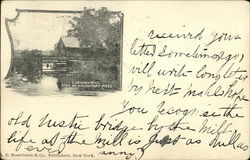 MILL
NEAR NEWBURYPORT MASS.
received your
letter sometime ago,
will write long letter
by next mail
You recognize the
old rustic bridge by the mill
life at the mill is just as
C. Bosselman & Co., Publishers, New York.